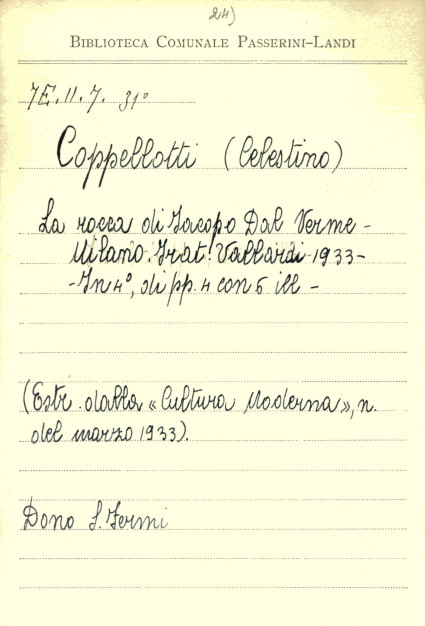 24)
BIBLIOTECA COMUNALE PASSERINI-LANDI
7E.11.7. 31°
Coppellotti (Celestino)
La rocca di Jacopo Dal Verme -
Milano. Frat. Vallardi 1933 -
- In 4°, di pp. 4 con 5 ill -
(Estr. dalla « Cultura Moderna », n.
del marzo 1933).
Dono S. Fermi